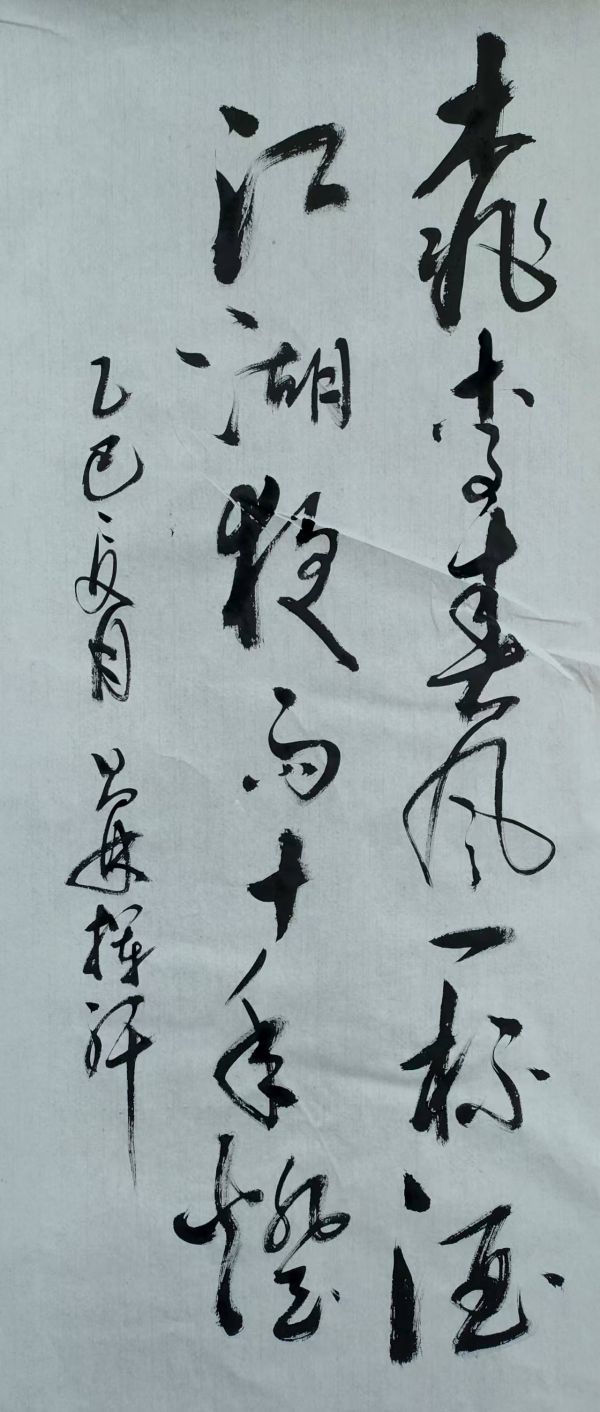 桃李春風一杯酒
江湖夜雨十年燈
乙巳夏月 揮汗